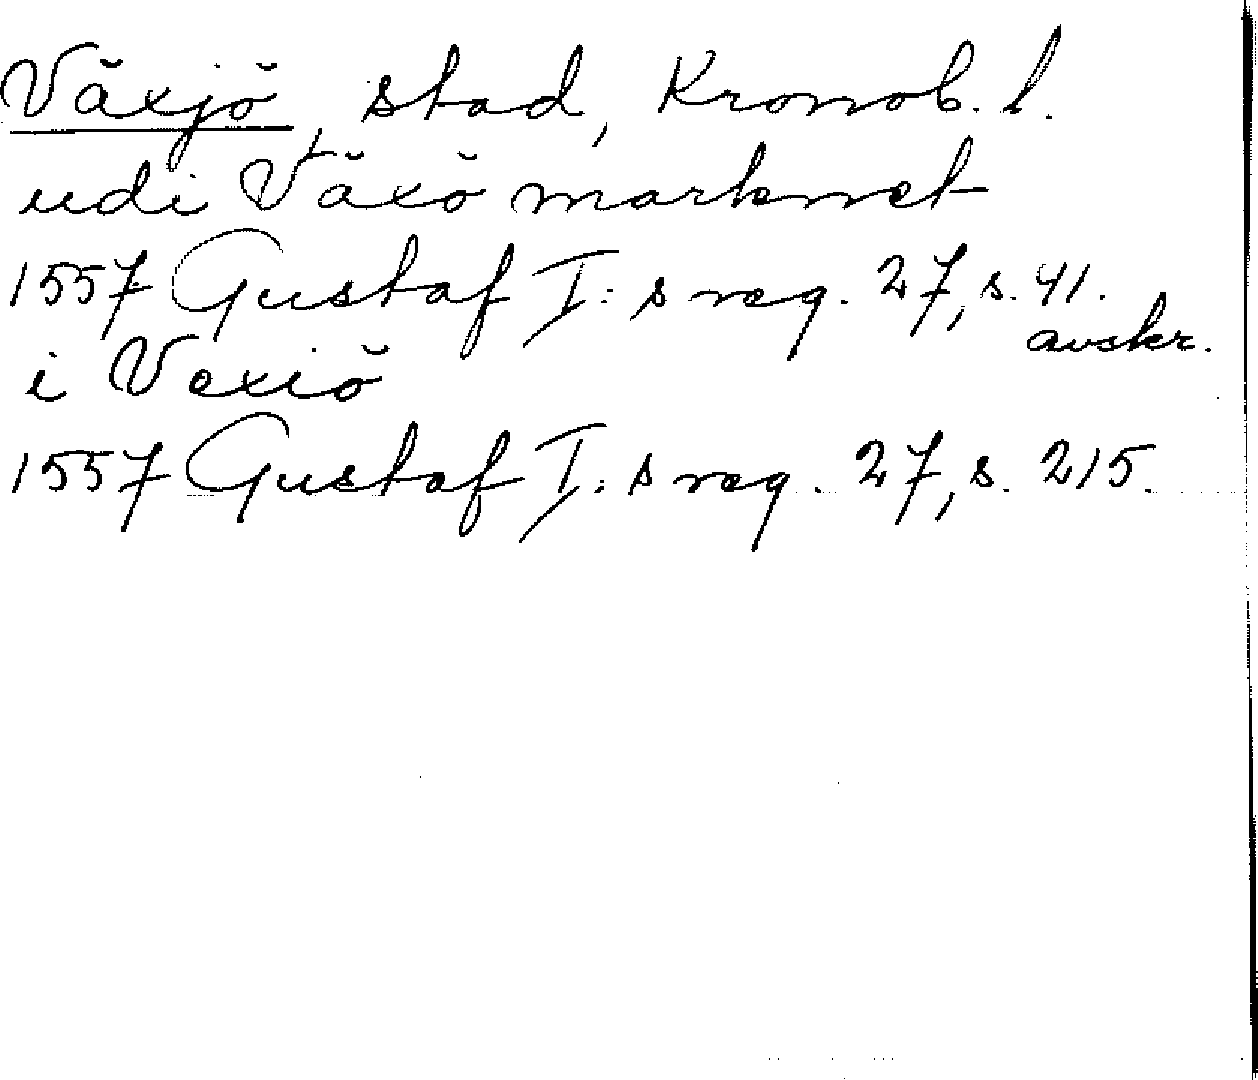 Växjö, stad, Kronob. l.
udi Växö marknet
1557 Gustaf I:s reg. 27, s. 41.
avskr.
i Vexiö
1557 Gustaf I:s reg. 27, s. 215.